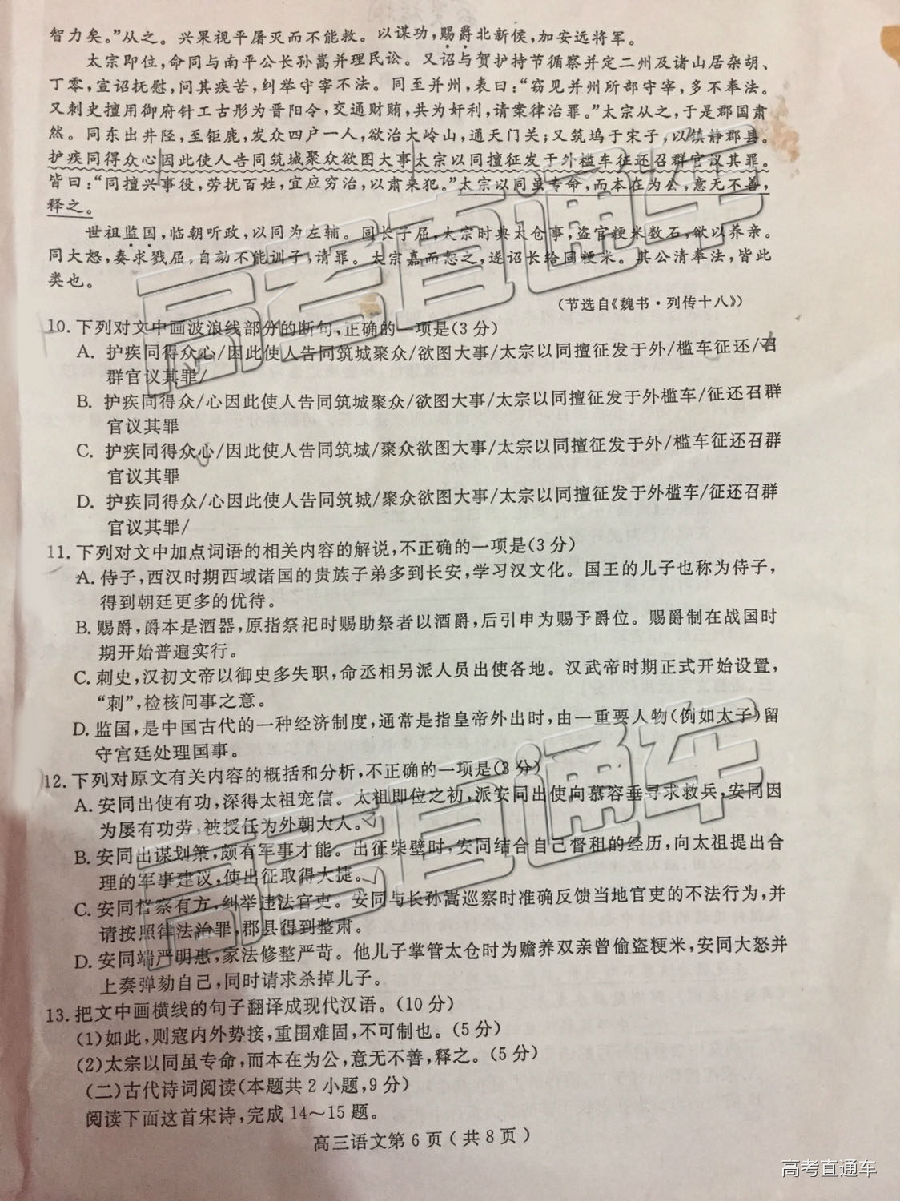 智力矣。”从之。兴果视平屠灭而不能救。以谋功，赐爵北新侯，加安远将军。
太宗即位，命同与南平公长孙嵩并理民讼。又诏与贺护持节循察并定二州及诸山居杂胡、
丁零，宣诏抚慰，问其疾苦，纠举守宰不法。同至并州，表曰：“窃见并州所部守宰，多不奉法。
又刺史擅用御府针工古彤为晋阳令，交通财贿，共为奸利，请案律治罪。”太宗从之，于是郡国肃
然。同东出井陉，至钜鹿，发众四户一人，欲治大岭山，通天门关；又筑坞于宋子，以镇静郡县。
护疾同得众心因此使人告同筑城聚众欲图大事太宗以同擅征发于外槛车征还召群官议其罪。
皆曰：“同擅兴事役，劳扰百姓，宜应穷治，以肃来犯。”太宗以同虽专命，而本在为公，意无不善，
释之。
世祖监国，临朝听政，以同为左辅。同长子屈，太宗时典太仓事，盗官粳米数石，欲以养亲。
同大怒，奏求戮屈，自劾不能训子，请罪。太宗嘉而恕之，遂诏长给同粳米。其公清奉法，皆此
类也。
（节选自《魏书·列传十八》）
10. 下列对文中画波浪线部分的断句，正确的一项是（3 分）
A. 护疾同得众心/因此使人告同筑城聚众/欲图大事/太宗以同擅征发于外/槛车征还/召
群官议其罪/
B. 护疾同得众/心因此使人告同筑城聚众/欲图大事/太宗以同擅征发于外槛车/征还召群
官议其罪
C. 护疾同得众心/因此使人告同筑城/聚众欲图大事/太宗以同擅征发于外/槛车征还召群
官议其罪
D. 护疾同得众/心因此使人告同筑城/聚众欲图大事/太宗以同擅征发于外槛车/征还召群
官议其罪/
11. 下列对文中加点词语的相关内容的解说，不正确的一项是（3 分）
A. 侍子，西汉时期西域诸国的贵族子弟多到长安，学习汉文化。国王的儿子也称为侍子，
得到朝廷更多的优待。
B. 赐爵，爵本是酒器，原指祭祀时赐助祭者以酒爵，后引申为赐予爵位。赐爵制在战国时
期开始普遍实行。
C. 刺史，汉初文帝以御史多失职，命丞相另派人员出使各地。汉武帝时期正式开始设置，
“刺”，检核问事之意。
D. 监国，是中国古代的一种经济制度，通常是指皇帝外出时，由一重要人物（例如太子）留
守宫廷处理国事。
12. 下列对原文有关内容的概括和分析，不正确的一项是（3 分）
A. 安同出使有功，深得太祖宠信。太祖即位之初，派安同出使向慕容垂寻求救兵，安同因
为屡有功劳，被授任为外朝大人。
B. 安同出谋划策，颇有军事才能。出征柴壁时，安同结合自己督租的经历，向太祖提出合
理的军事建议，使出征取得大捷。
C. 安同督察有方，纠举违法官吏。安同与长孙嵩巡察时准确反馈当地官吏的不法行为，并
请按照律法治罪，郡县得到整肃。
D. 安同端严明惠，家法修整严苛。他儿子掌管太仓时为赡养双亲曾偷盗粳米，安同大怒并
上奏弹劾自己，同时请求杀掉儿子。
13. 把文中画横线的句子翻译成现代汉语。（10 分）
（1）如此，则寇内外势接，重围难固，不可制也。（5 分）
（2）太宗以同虽专命，而本在为公，意无不善，释之。（5 分）
（二）古代诗词阅读（本题共 2 小题，9 分）
阅读下面这首宋诗，完成 14～15 题。
高三语文第 6 页（共 8 页）
高考直通车
高考直通车
高考直通车